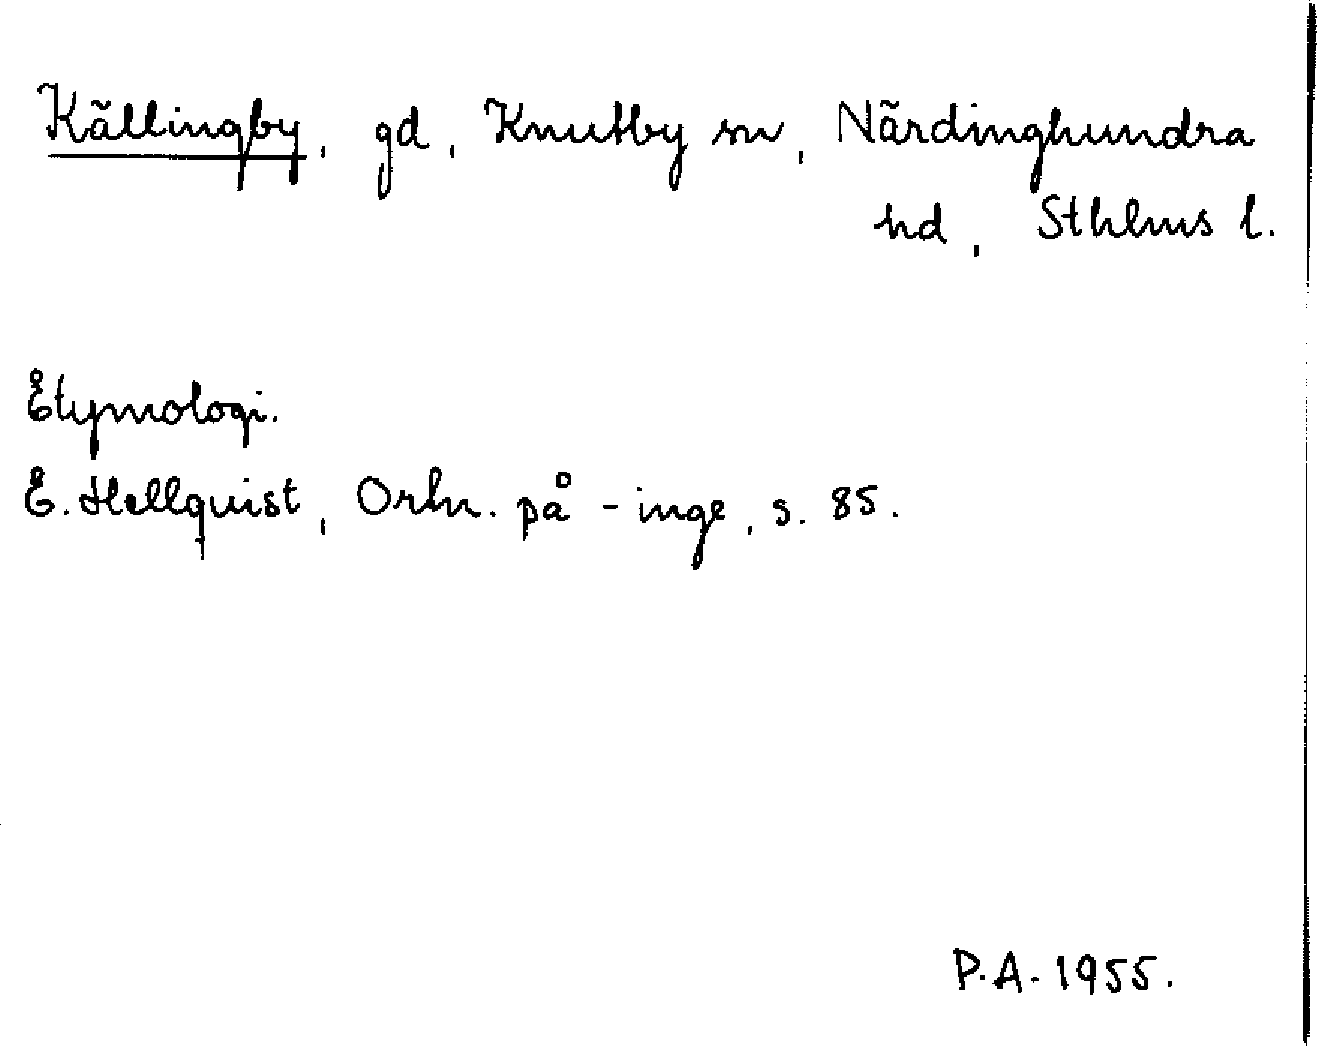 Källingby, gd, Knutby sn, Närdinghundra
hd, Sthlms l.
Etymologi.
E. Hellquist, Ortn. på -inge, s. 85.
P.A. 1955.